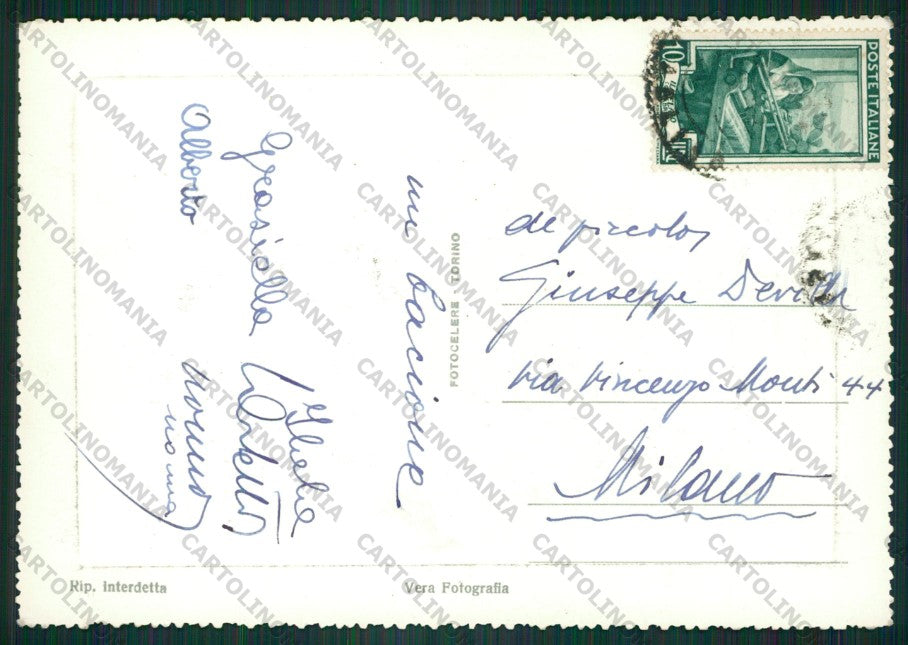 POSTE ITALIANE
10
LIRE
un bacione
Graziella
Alberto
Nonno
FOTOCELERE TORINO
al piccolo
Giuseppe
Via Vincenzo Monti 44
Milano
Rip. Interdetta
Vera Fotografia
CARTOLINOMANIA